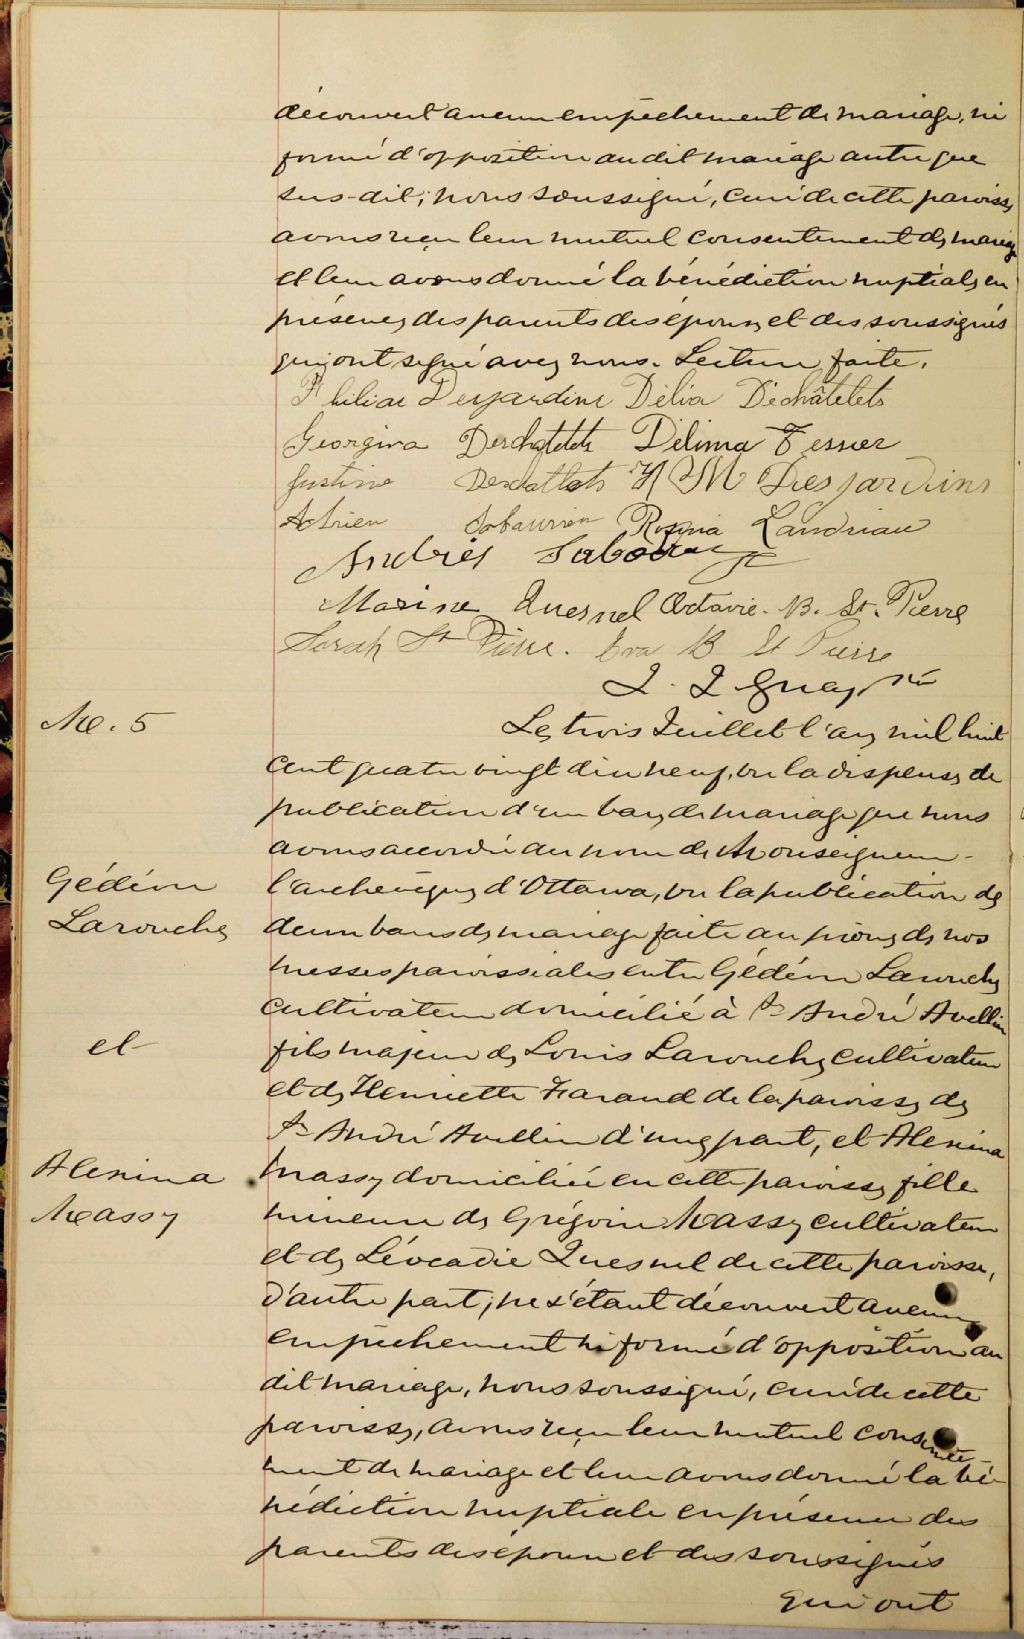 découvert aucun empêchement de mariage, ni
formé d'opposition au dit mariage autre que
sus-dit; nous soussigné, curé de cette paroisse
avons reçu leur mutuel consentement de mariage
et leur avons donné la bénédiction nuptiale, en
présence des parents des époux et des soussignés
qui ont signé avec nous. Lecture faite.
Philias Desjardins Délia Déchâtelets
Georgina Deschatelets Délima Tessier
Justine H M Desjardins
Adrien Sabourin Rosina Landriau
Andrés Sabourin
Masine Quesnel Octavie. B. St. Pierre
Sarah St Pierre. Eva B St Pierre
J. J Guay, Ptre
M. 5
Le trois Juillet l'an mil huit
cent quatre vingt dix neuf, vu la dispense de
publication d'un ban de mariage que nous
avons accordée au nom de Monseigneur
Gédéon
l'archevêque d'Ottawa, vu la publication de
Larouche
deux bans de mariage faite au prône de nos
messes paroissiales entre Gédéon Larouche
cultivateur domicilié à St André Avellin
et
fils majeur de Louis Larouche cultivateur
et de Henriette Farand de la paroisse de
St André Avellin d'une part, et Alexina
Alexina
Massy domiciliée en cette paroisse fille
Massy
mineure de Grégoire Massy cultivateur
et de Léocadie Quesnel de cette paroisse,
d'autre part; ne s'étant découvert aucun
empêchement ni formé d'opposition au
dit mariage, nous soussigné, curé de cette
paroisse, avons reçu leur mutuel consente-
ment de mariage et leur avons donné la bé-
nédiction nuptiale en présence des
parents des époux et des soussignés
qui ont